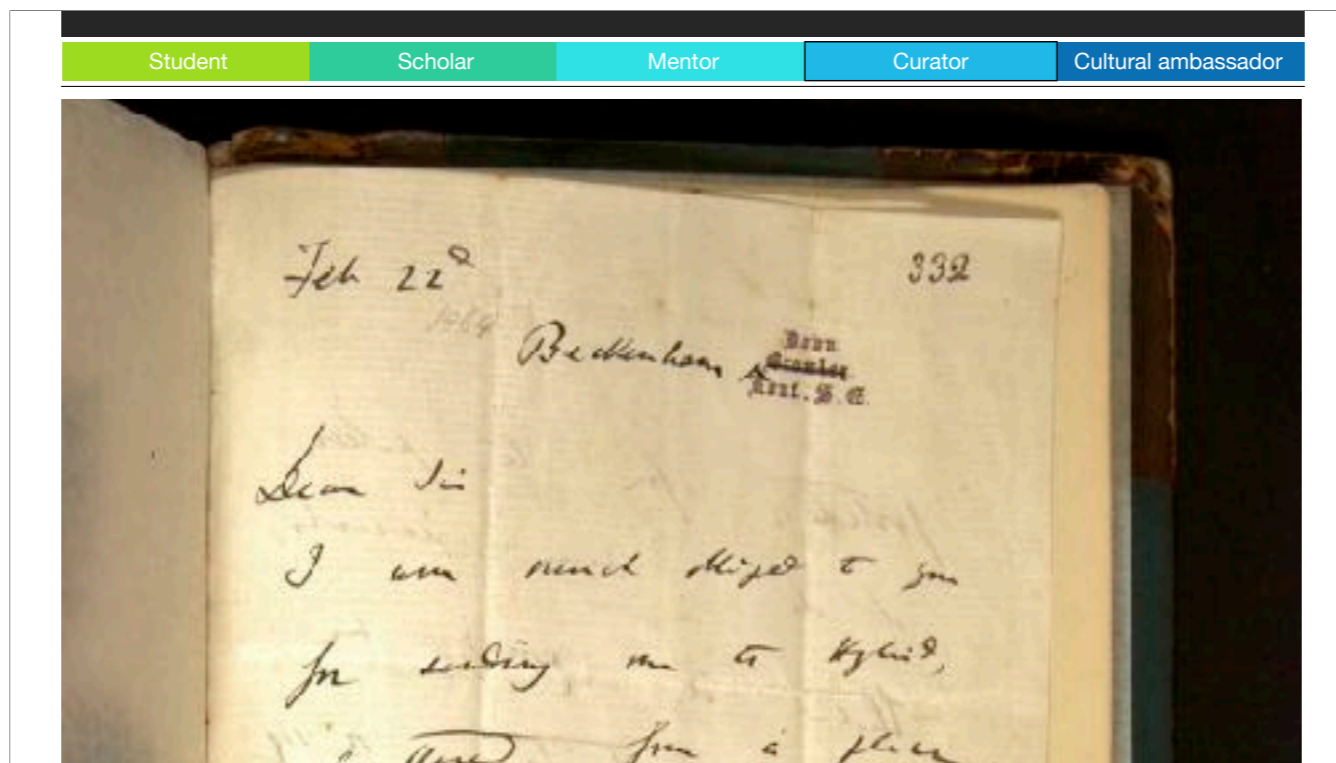 Student Scholar Mentor Curator Cultural ambassador
Feb 22d 332
Beckenham
Down
Bromley
Kent. S.E.
Dear Sir
I am much obliged to you
for sending me the Hybrid,
from a